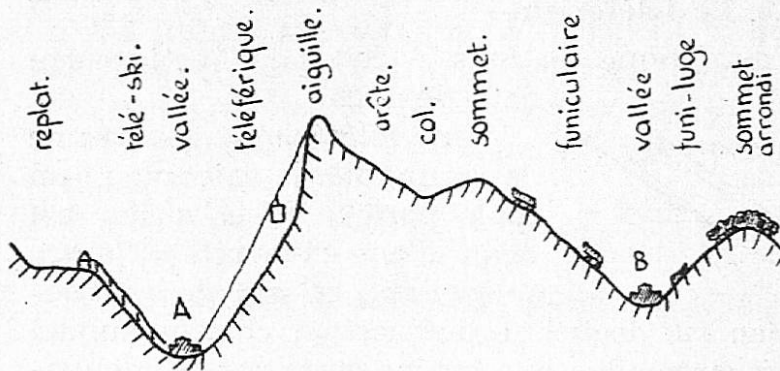 replat.
télé-ski.
vallée.
téléférique.
aiguille.
arête.
col.
sommet.
funiculaire
vallée
funi-luge
sommet
arrondi
A
B